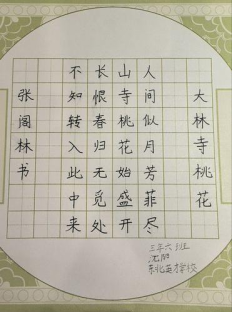 大林寺桃花
人间似月芳菲尽
山寺桃花始盛开
长恨春归无觅处
不知转入此中来
张阁林书
三年六班
沈阳
东北英才学校